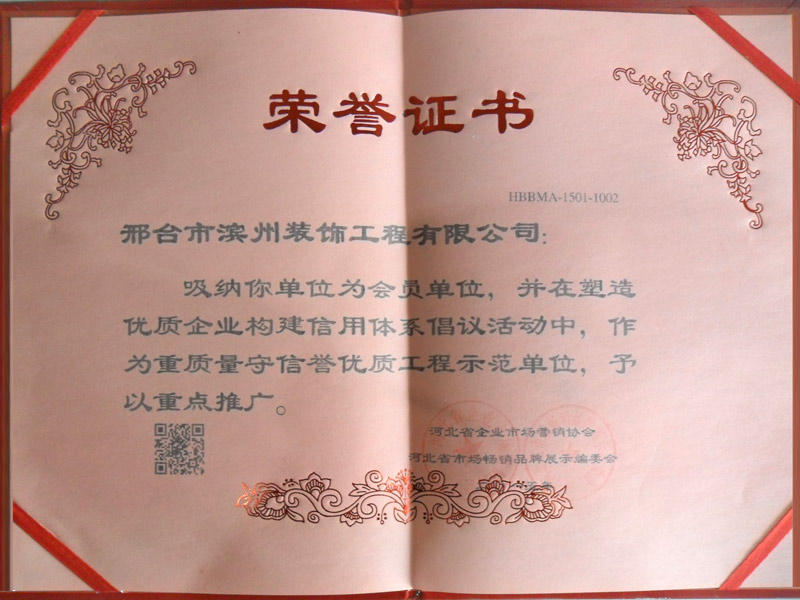 荣誉证书
HBBMA-1501-1002
邢台市滨州装饰工程有限公司:
吸纳你单位为会员单位，并在塑造
优质企业构建信用体系倡议活动中，作
为重质量守信誉优质工程示范单位，予
以重点推广。
河北省企业市场营销协会
河北省市场畅销品牌展示编委会